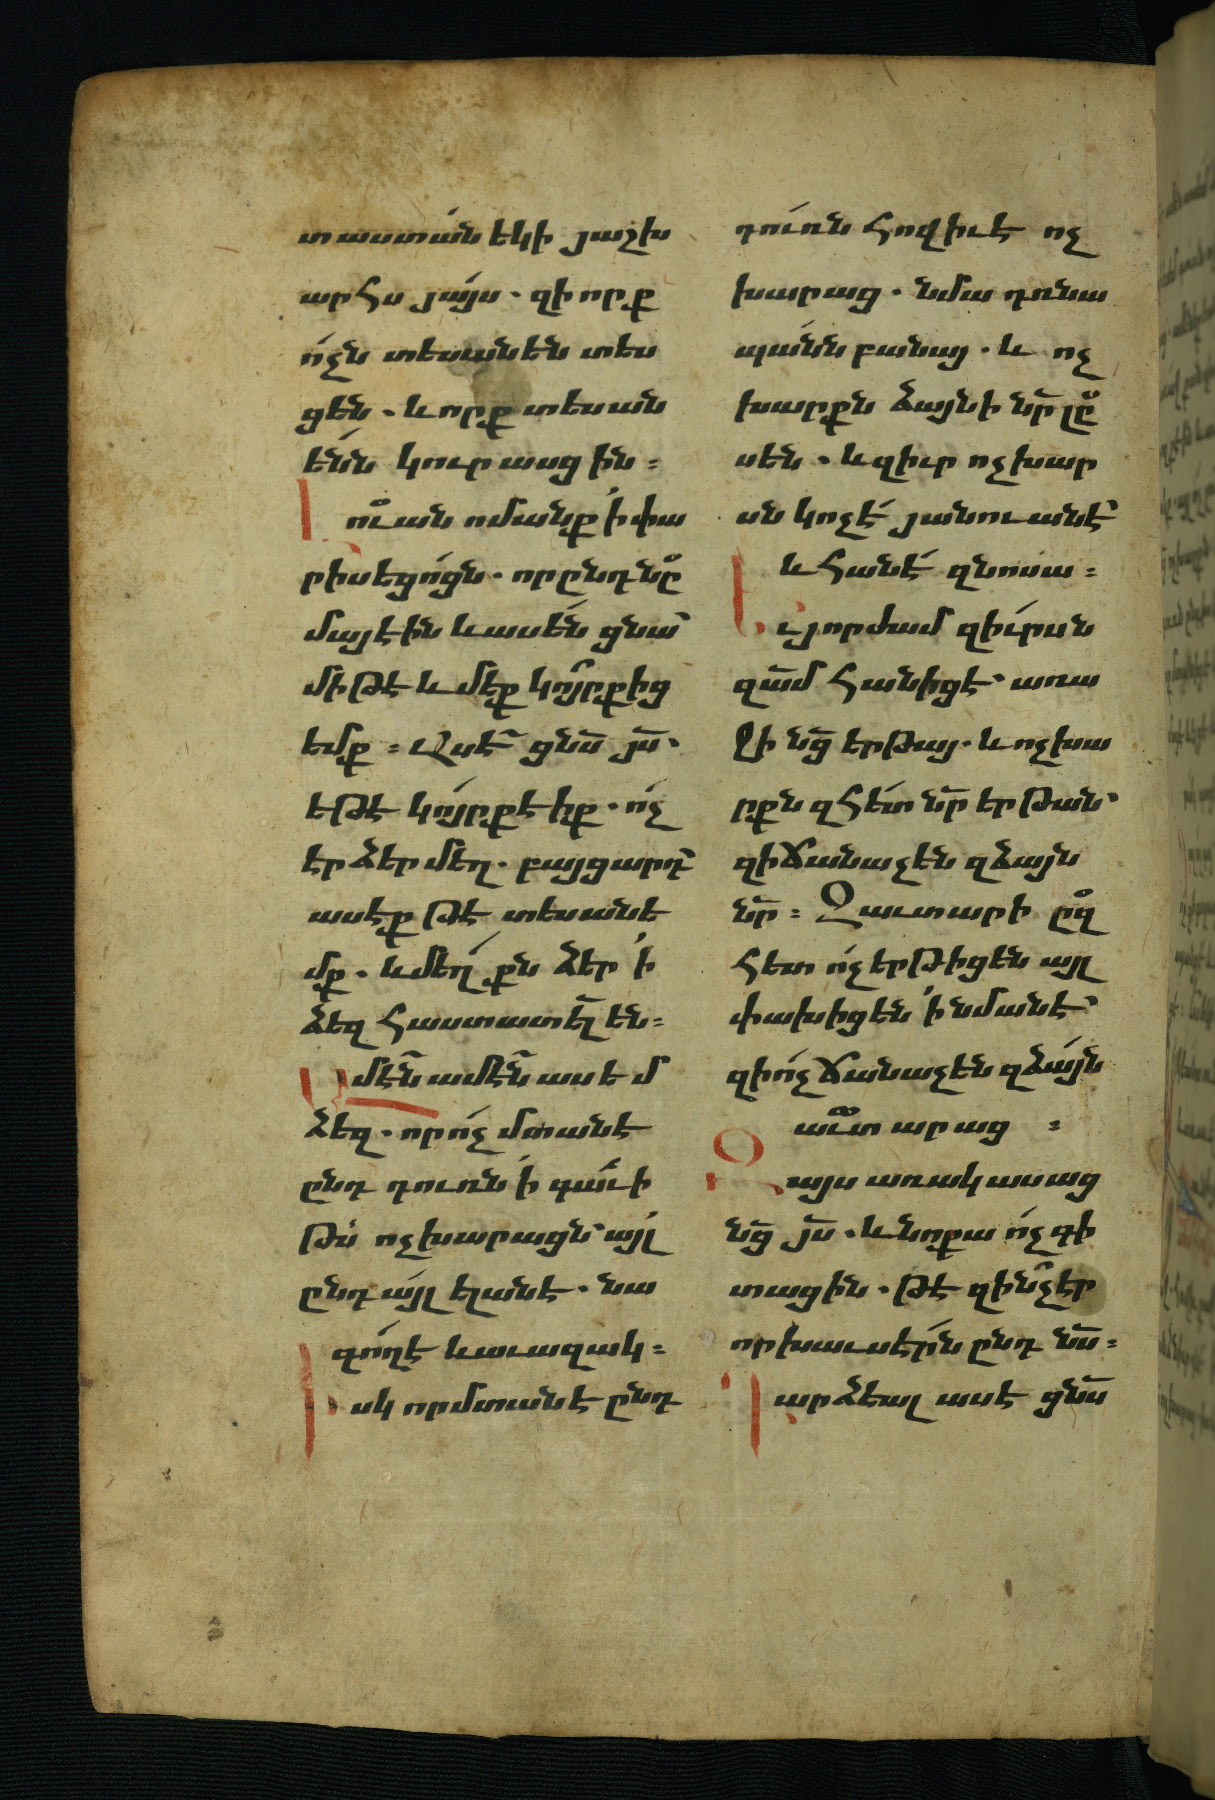 տաստան եկի յաշխ
արհս յայս · զի որք
ոչն տեսանեն տես
ցեն · և որք տեսան
ենն կուրասցին ։
Լուան ոմանք ի փա
րիսեցոցն · որ ընդ նմ̄
մայ էին և ասեն ցնա՝
միթէ և մեք կոյրք ից
եմք ։ Ասէ ցնս̄ յս̄ ·
եթէ կոյրք էիք · ոչ
էր ձեր մեղ · բայց արդ՝
ասէք թէ տեսանե
մք · և մեղքն ձեր ի
ձեզ հաստատել են ։
Ամէն ամէն ասեմ
ձեզ · որ ոչ մտանէ
ընդ դուռն ի գաւի
թս ոչխարացն՝ այլ
ընդ այլ ելանէ · նա
գող է և աւազակ ։
Իսկ որ մտանէ ընդ
դուռն հովիւ է ոչ
խարաց · նմա դռնա
պանն բանայ · և ոչ
խարքն ձայնի նր̄ լը
սեն · և զիւր ոչխար
սն կոչէ յանուանէ՝
և հանէ զնոսա ։
Եւ յորժամ զիւրսն
զամ̄ հանիցէ՝ առա
ջի նց̄ երթայ · և ոչխա
րքն զհետ նր̄ երթան՝
զի ճանաչեն զձայն
նր̄ ։ Զաւտարի ըզ
հետ ոչ երթիցեն այլ
փախիցեն ի նմանէ՝
զի ոչ ճանաչեն զձայն
աւտարաց ։
Զայս առակ ասաց
նց̄ յս̄ · և նոքա ոչ գի
տացին · թէ զինչ էր
որ խաւսէրն ընդ նս̄ ։
Դարձեալ ասէ ցնս̄